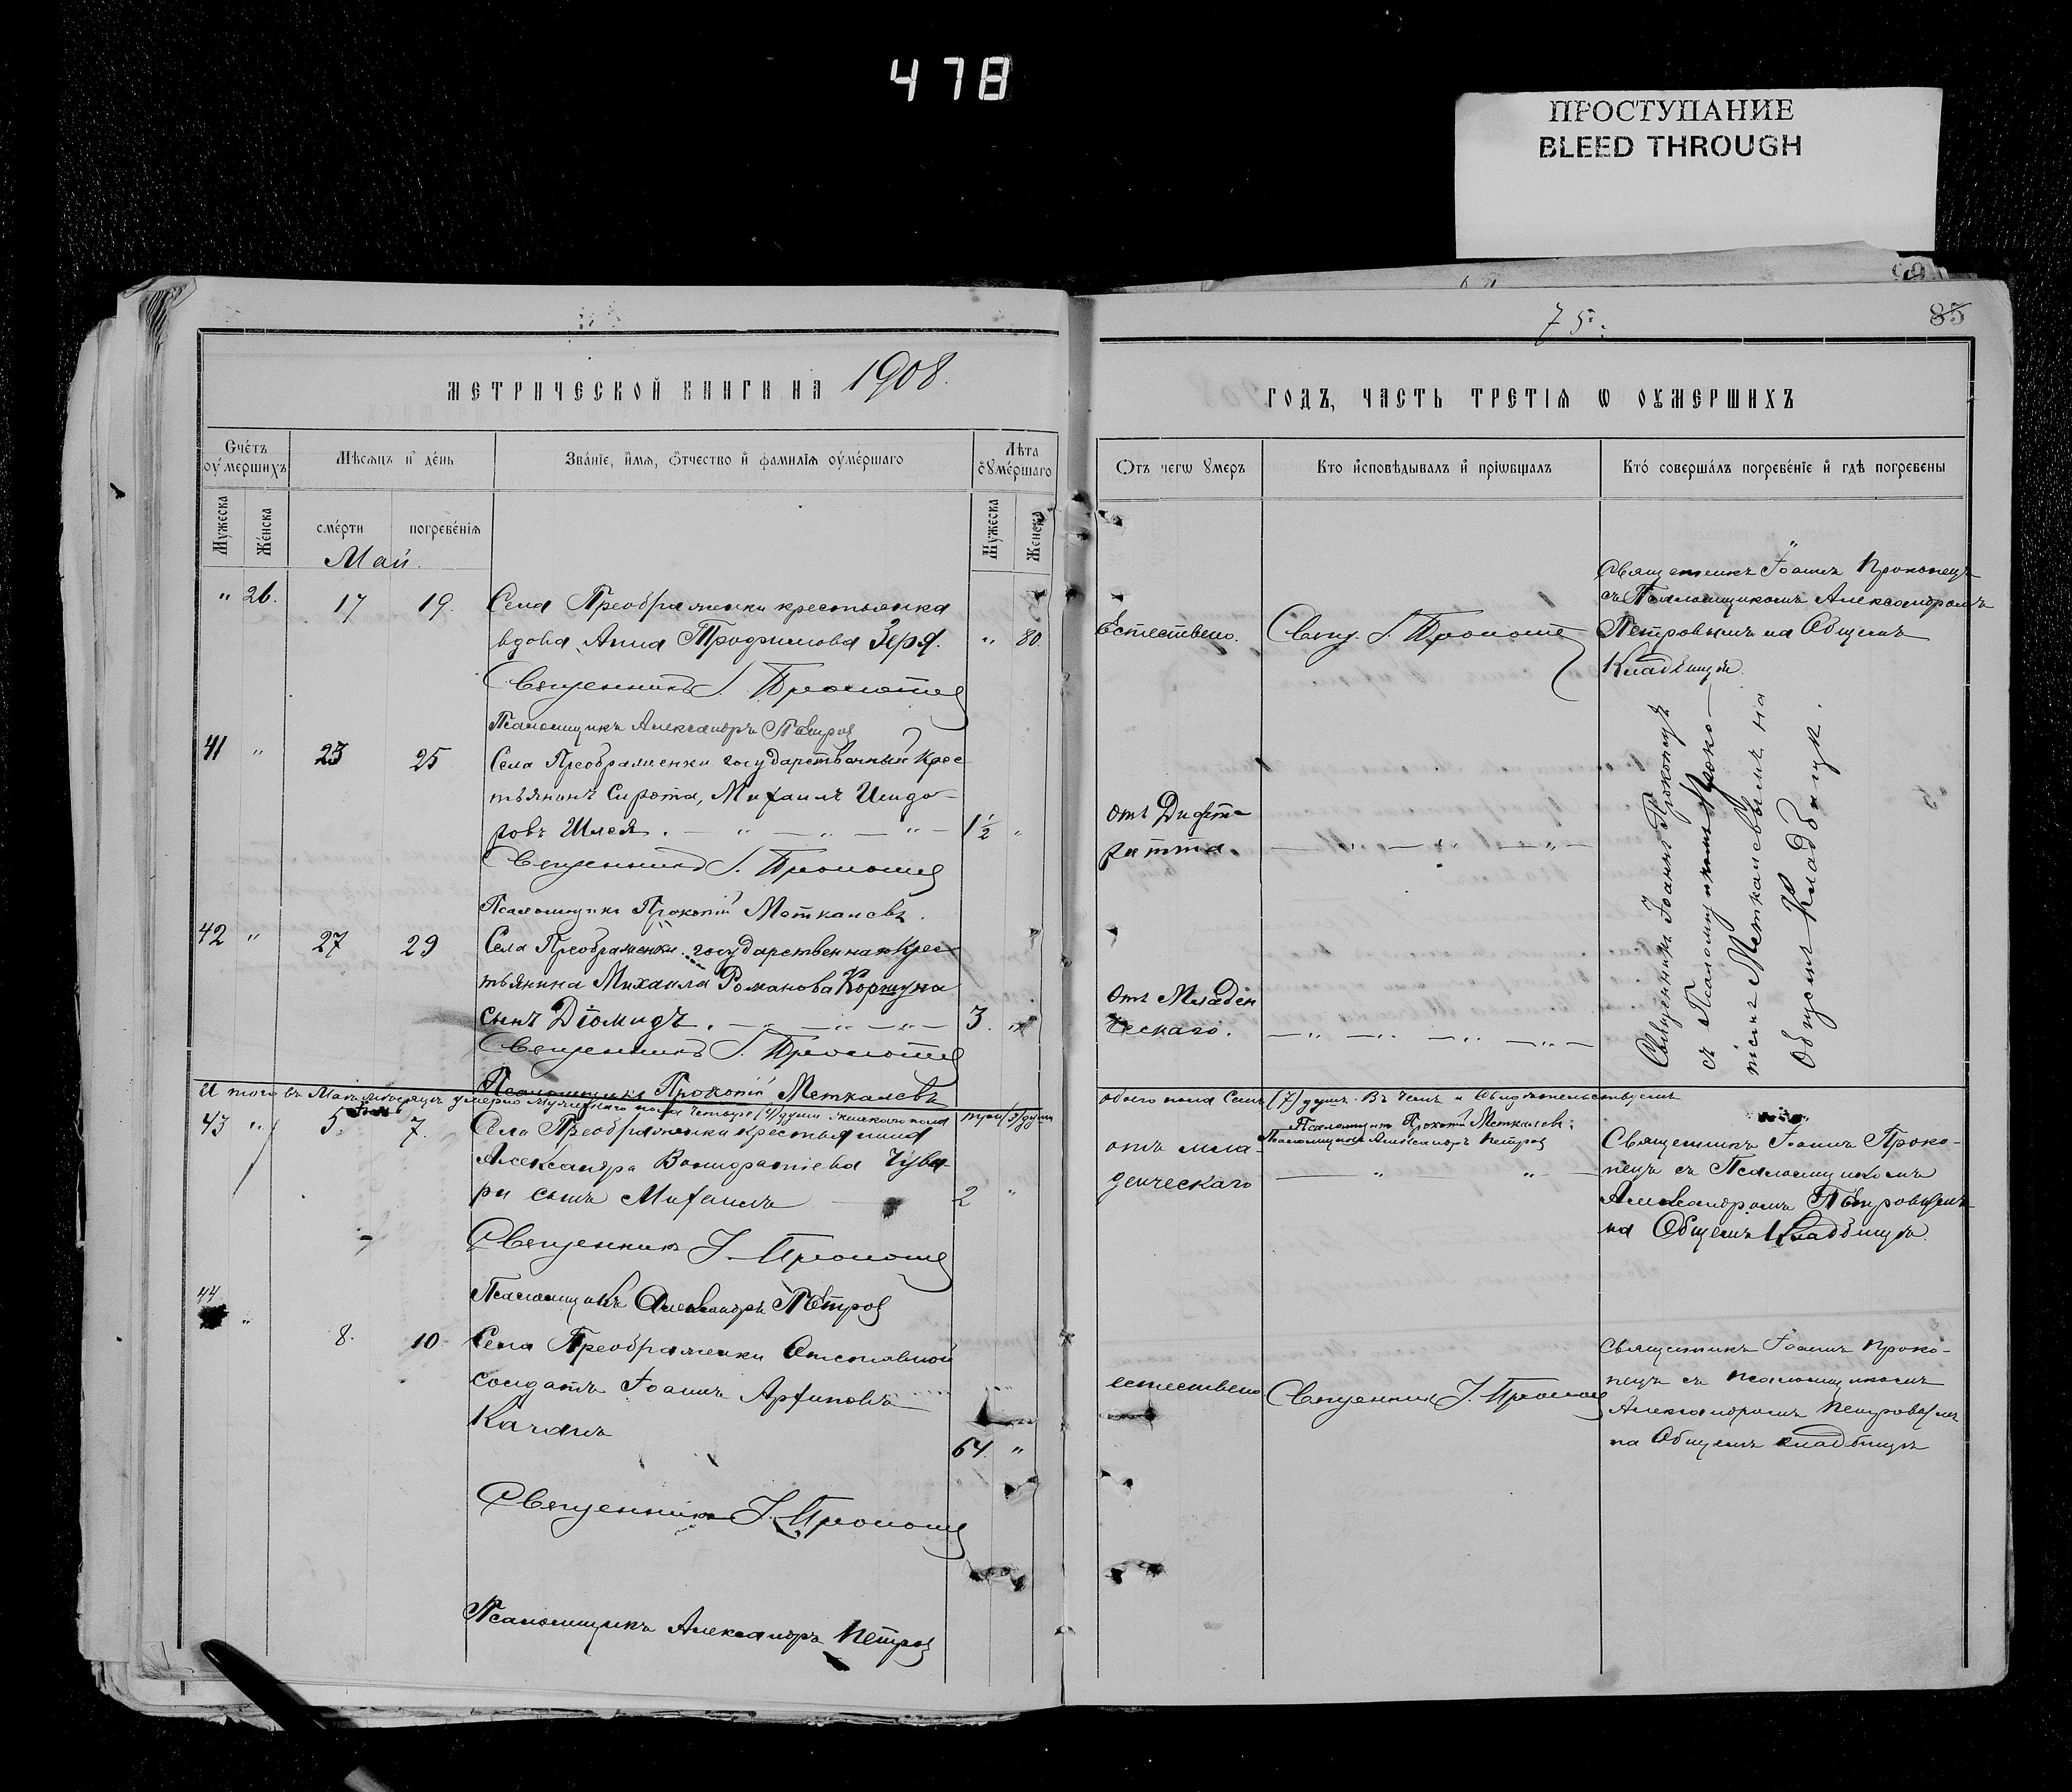 478
ПРОСТУПАНИЕ
BLEED THROUGH
75.
85
МЕТРИЧЕСКОЙ КНИГИ НА 1908.
ГОДЪ, ЧАСТЬ ТРЕТІЯ Ѡ ОУМЕРШИХЪ
Счетъ оумершихъ
Мѣсяцъ и день
Званіе, имя, отчество и фамилія оумершаго
Лѣта оумершаго
Отъ чегѡ умеръ
Кто исповѣдывалъ и пріѡбщалъ
Кто совершалъ погребеніе и гдѣ погребены
Мужеска
Женска
смерти
погребенія
Мужеска
Женска
Май.
" 26. 17 19. Села Преображенки крестьянка
вдова, Анна Трофимова " 80.
Священникъ І. Прокопец
Псаломщикъ Александръ Петров
Естествено.
Свящ. І. Прокопец
Священникъ Іоаннъ Прокопецъ
съ Псаломщикомъ Александромъ
Петровымъ на Общемъ
Кладбищѣ.
41 " 23 25 Села Преображенки государственный крес
тьянинъ Сирота, Михаилъ Исидо-
ровъ Шлея. 1½ "
Священникъ І. Прокопец
Псаломщикъ Прокопій Меткалевъ.
отъ Дифте-
ритта
Священникъ Іоаннъ Прокопецъ
съ Псаломщикомъ Проко-
піемъ Меткалевымъ на
Общемъ Кладбищѣ.
42 " 27 29 Села Преображенки государственнаго Крес-
тьянина Михаила Романова Коршуна
сынъ Діомидъ. 3. "
Священникъ І. Прокопец
Псаломщикъ Прокопій Меткалевъ
Отъ Младен
ческаго.
И того въ Маѣ мѣсяцѣ умерло мужескаго пола четыре (4) души женскаго пола три (3) души
обоего пола семь (7) душъ. Въ чемъ и свидѣтельствуемъ
Псаломщик Прокопій Меткалев.
Псаломщикъ Александръ Петров
43 " 5. 7. Села Преображенки крестьянина
Александра
сынъ Михаилъ 2 "
Священник І. Прокопец
Псаломщикъ Александръ Петров
отъ мла-
денческаго
Священникъ Іоаннъ Проко-
пецъ съ Псаломщикомъ
Александромъ Петровымъ
на Общемъ Кладбищѣ.
44 " 8. 10 Села Преображенки Отставной
солдатъ Іоаннъ Архиповъ
Качанъ 64. "
Священникъ І. Прокопец
Псаломщикъ Александръ Петров
естествено
Священник І. Прокопец
Священникъ Іоаннъ Проко-
пецъ съ псаломщикомъ
Александромъ Петровымъ
на Общемъ кладбищѣ